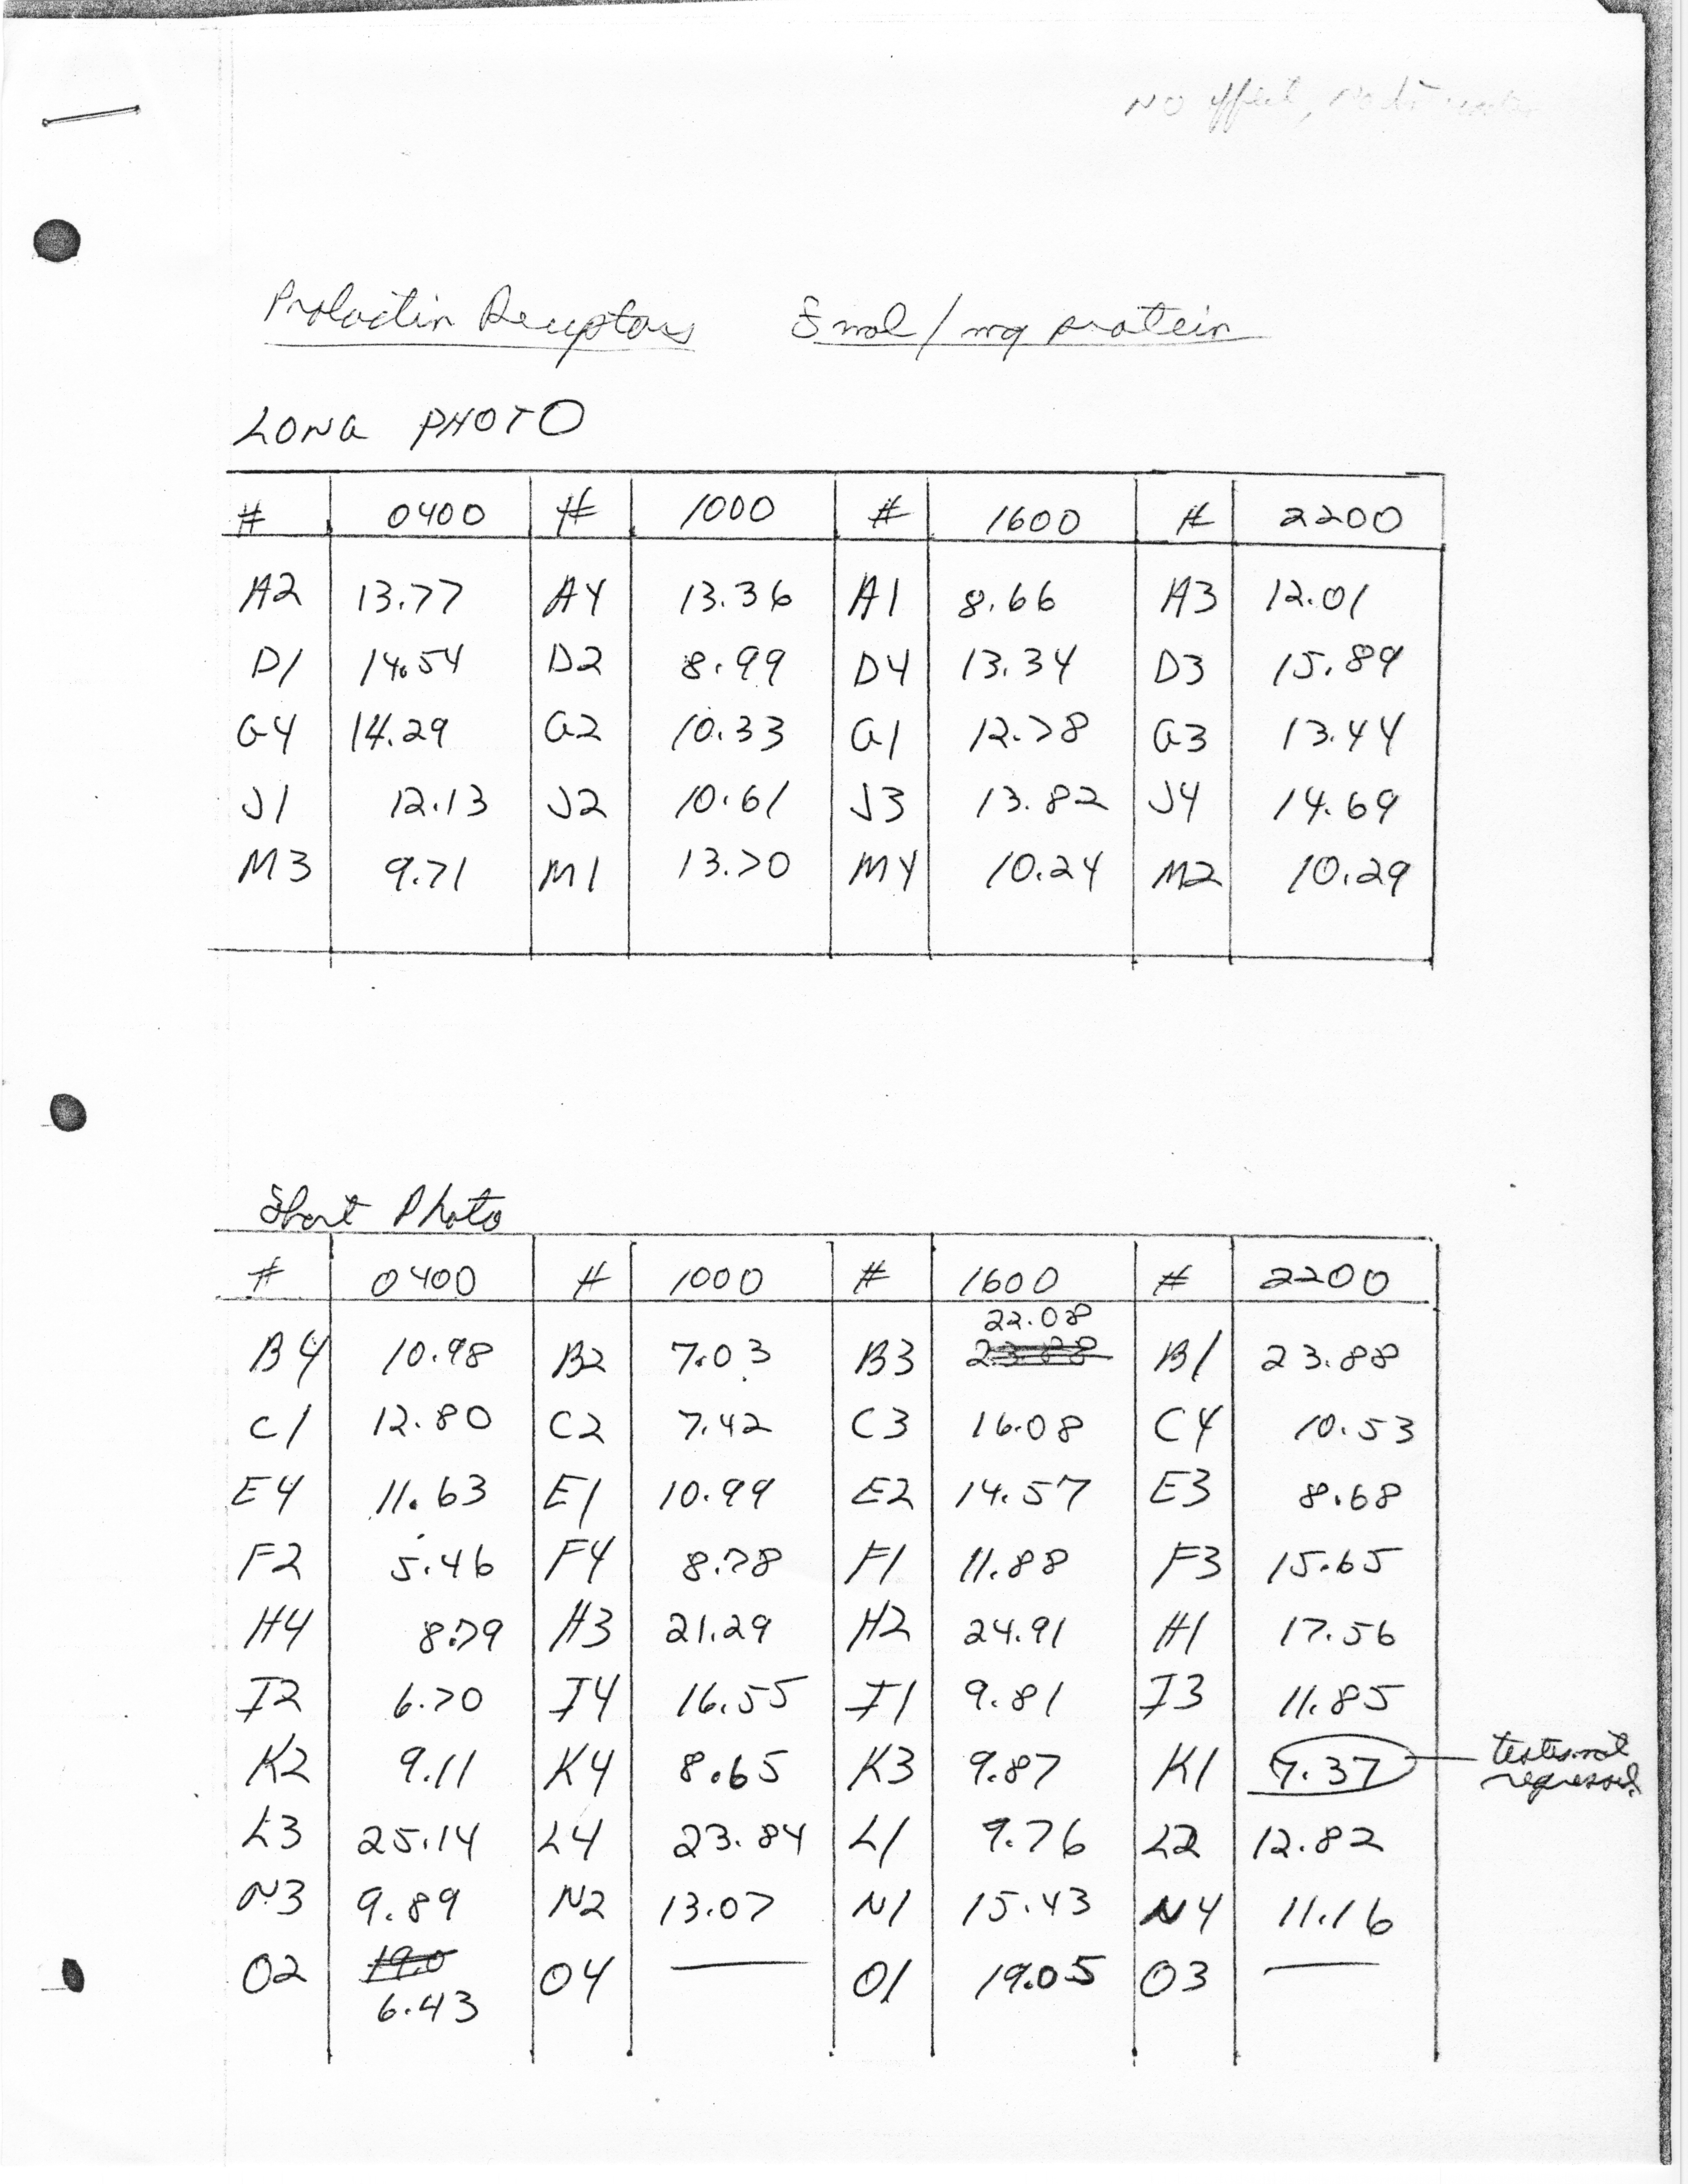 NO effect,
Prolactin Receptors fmol/mg protein
LONG PHOTO
# 0400 # 1000 # 1600 # 2200
A2 13.77 A4 13.36 A1 8.66 A3 12.01
D1 14.54 D2 8.99 D4 13.34 D3 15.89
G4 14.29 G2 10.33 G1 12.78 G3 13.44
J1 12.13 J2 10.61 J3 13.82 J4 14.69
M3 9.71 M1 13.70 M4 10.24 M2 10.29
Short Photo
# 0400 # 1000 # 1600 # 2200
22.08
B4 10.98 B2 7.03 B3 23.88 B1 23.88
C1 12.80 C2 7.42 C3 16.08 C4 10.53
E4 11.63 E1 10.99 E2 14.57 E3 8.68
F2 5.46 F4 8.78 F1 11.88 F3 15.65
H4 8.79 H3 21.29 H2 24.91 H1 17.56
I2 6.70 I4 16.55 I1 9.81 I3 11.85
K2 9.11 K4 8.65 K3 9.87 K1 9.37 testes not
regressed
L3 25.14 L4 23.84 L1 9.76 L2 12.82
N3 9.89 N2 13.07 N1 15.43 N4 11.16
O2 19.0 O4 — O1 19.05 O3 —
6.43